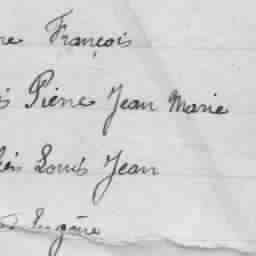 François
Pierre Jean Marie
Louis Jean
Eugène